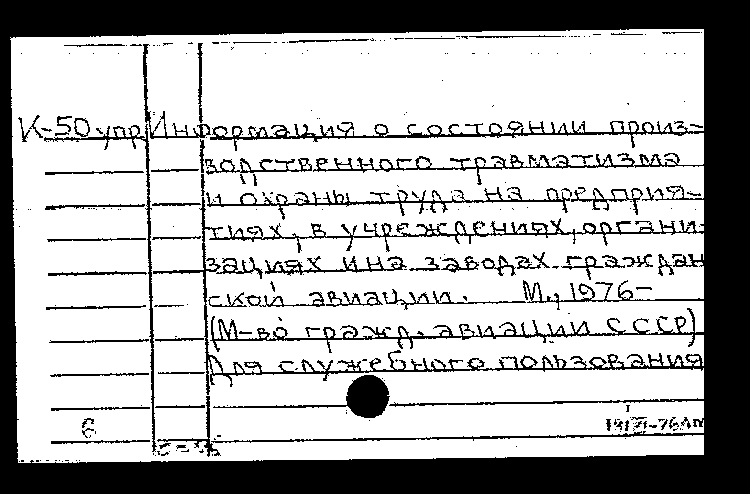 К-50 упр Информация о состоянии произ-
водственного травматизма
и охраны труда на предприя-
тиях, в учреждениях, органи-
зациях и на заводах граждан
ской авиации. М., 1976-
(М-во гражд. авиации СССР)
Для служебного пользования
6